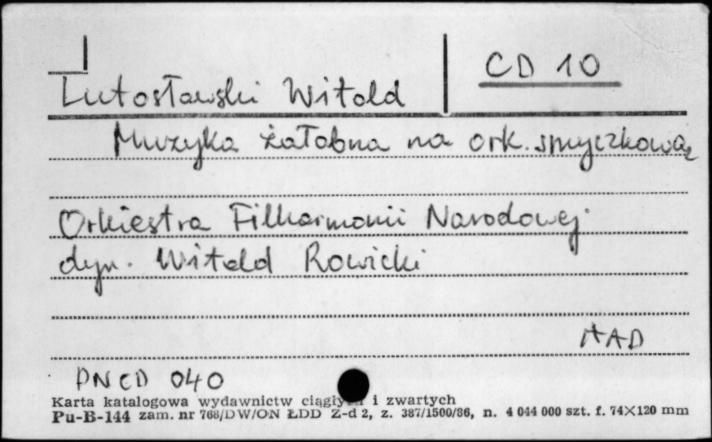 Lutosławski Witold
CD 10
Muzyka żałobna na ork. smyczkową
Orkiestra Filharmonii Narodowej
dyr. Witold Rowicki
AAD
PNCD 040
Karta katalogowa wydawnictw ciągłych i zwartych
Pu-B-144 zam. nr 768/DW/ON ŁDD Z-d 2, z. 387/1500/86, n. 4 044 000 szt. f. 74×120 mm